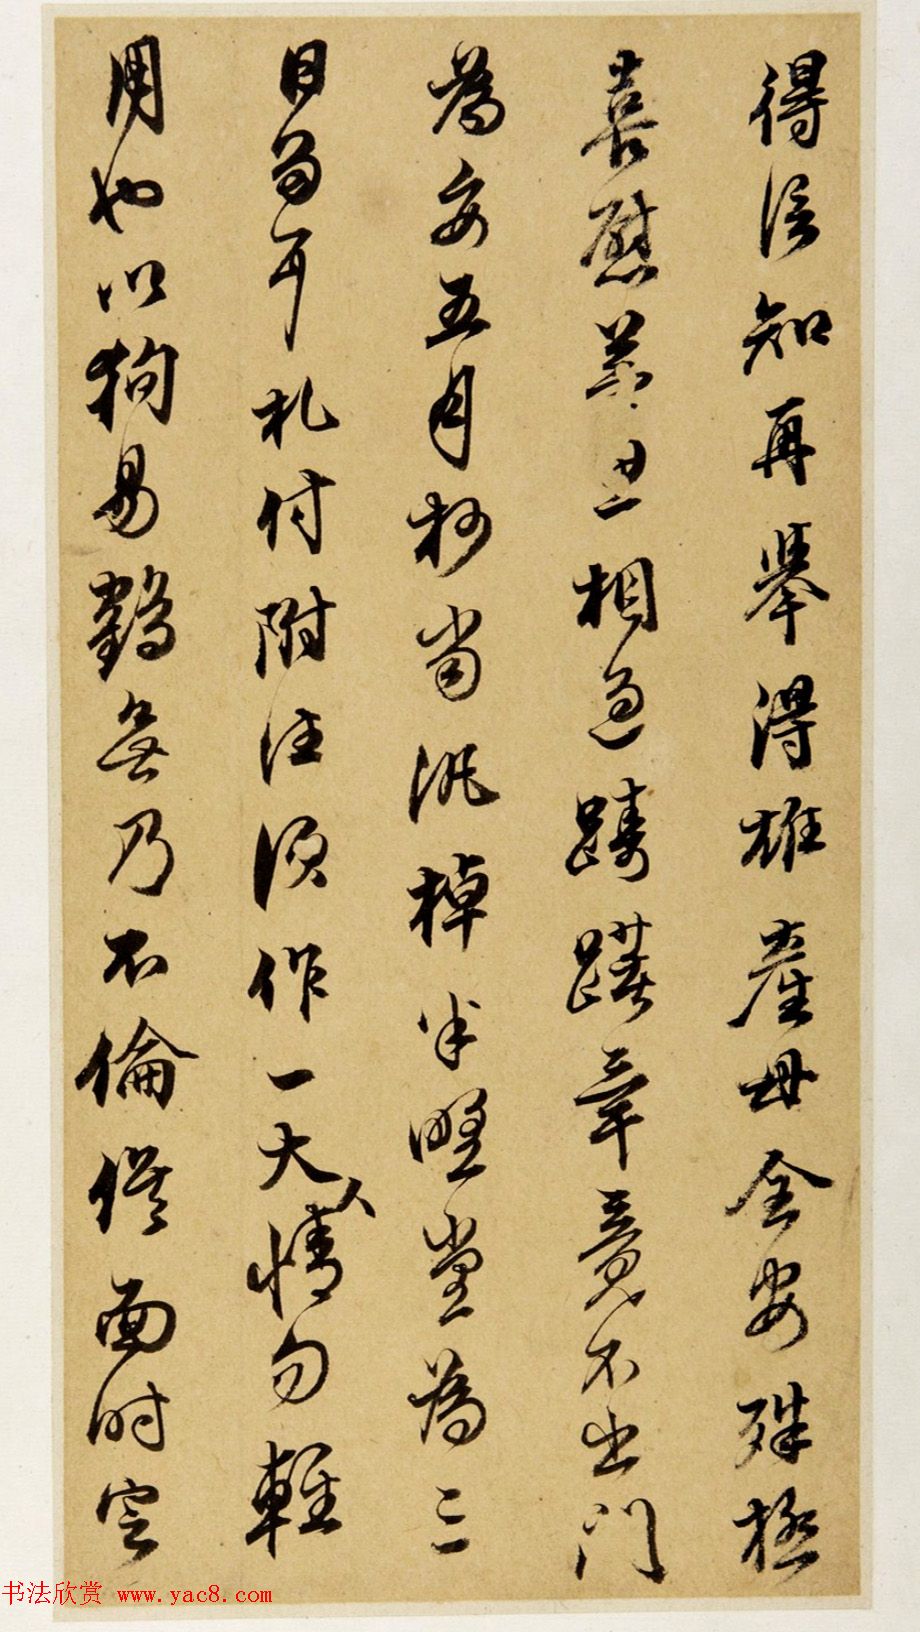 得信知再舉得雄產母全安殊極
喜慰相過躊躇竟不出門
為妥五月杪當汎棹半野堂為三
日留耳札付附往須作一大人情勿輕
用也以狗易無乃不倫俟面時定
书法欣赏 www.yac8.com